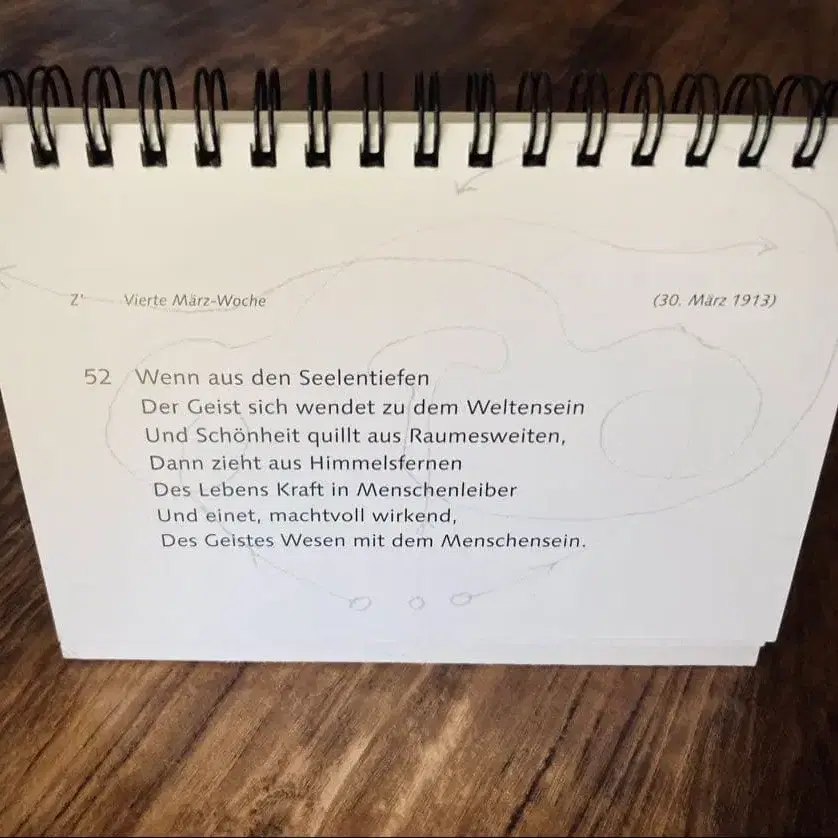 Z' Vierte März-Woche (30. März 1913)
52 Wenn aus den Seelentiefen
Der Geist sich wendet zu dem Weltensein
Und Schönheit quillt aus Raumesweiten,
Dann zieht aus Himmelsfernen
Des Lebens Kraft in Menschenleiber
Und einet, machtvoll wirkend,
Des Geistes Wesen mit dem Menschensein.